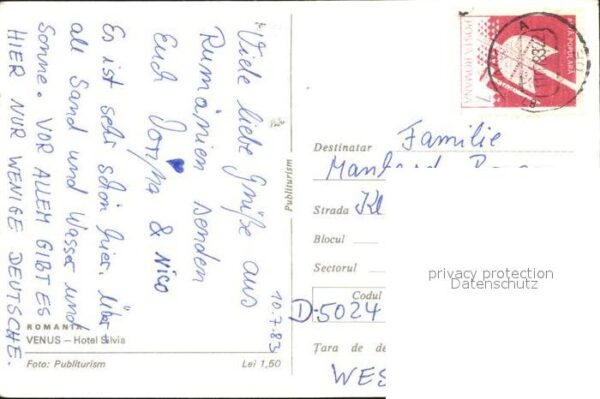 Viele liebe Grüße aus
Rumänien senden
Euch & Nico
Es ist sehr schön hier. Über
all Sand und Wasser und
Sonne. VOR ALLEM GIBT ES
HIER NUR WENIGE DEUTSCHE.
10.7.83
ROMANIA
VENUS – Hotel Silvia
Foto: Publiturism
Lei 1,50
Publiturism
POSTA ROMANA
POPULARĂ
Destinatar Familie
Strada
Blocul
Sectorul
Codul
D-5024
Țara de de
WES
privacy protection
Datenschutz